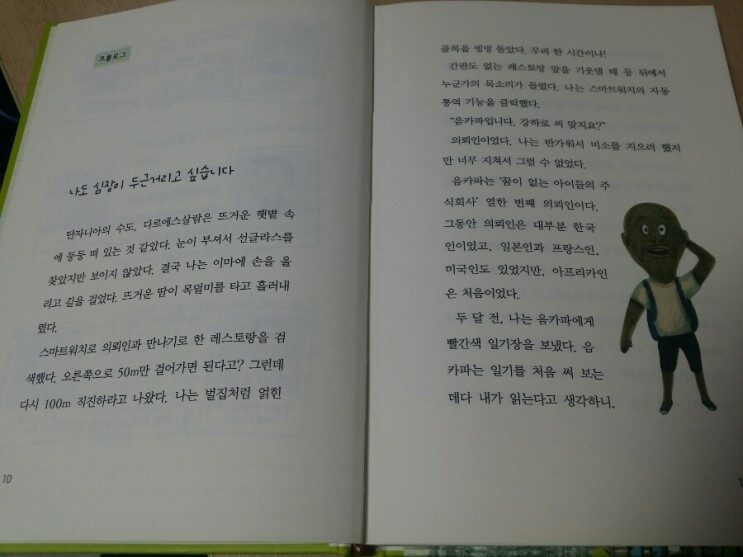 프롤로그
나도 심장이 두근거리고 싶습니다
탄자니아의 수도, 다르에스살람은 뜨거운 햇볕 속
에 둥둥 떠 있는 것 같았다. 눈이 부셔서 선글라스를
찾았지만 보이지 않았다. 결국 나는 이마에 손을 올
리고 길을 걸었다. 뜨거운 땀이 목덜미를 타고 흘러내
렸다.
스마트워치로 의뢰인과 만나기로 한 레스토랑을 검
색했다. 오른쪽으로 50m만 걸어가면 된다고? 그런데
다시 100m 직진하라고 나왔다. 나는 벌집처럼 얽힌
10
골목을 빙빙 돌았다. 무려 한 시간이나!
간판도 없는 레스토랑 앞을 기웃댈 때 등 뒤에서
누군가의 목소리가 들렸다. 나는 스마트워치의 자동
통역 기능을 클릭했다.
“음카파입니다. 강하로 씨 맞지요?”
의뢰인이었다. 나는 반가워서 미소를 지으려 했지
만 너무 지쳐서 그럴 수 없었다.
음카파는 ‘꿈이 없는 아이들의 주
식회사’ 열한 번째 의뢰인이다.
그동안 의뢰인은 대부분 한국
인이었고, 일본인과 프랑스인,
미국인도 있었지만, 아프리카인
은 처음이었다.
두 달 전, 나는 음카파에게
빨간색 일기장을 보냈다. 음
카파는 일기를 처음 써 보는
데다 내가 읽는다고 생각하니,